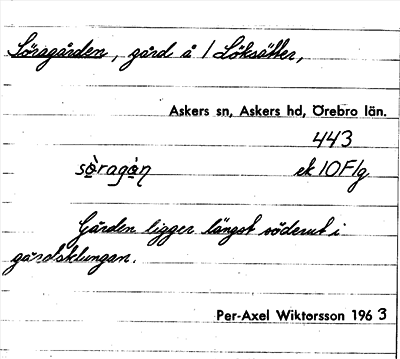 Söragården, gård å 1 Löksätter,
Askers sn, Askers hd, Örebro län.
443
sö̀ragàn ek 10F1g
Gården ligger längst söderut i
gårdsklungan.
Per-Axel Wiktorsson 1963